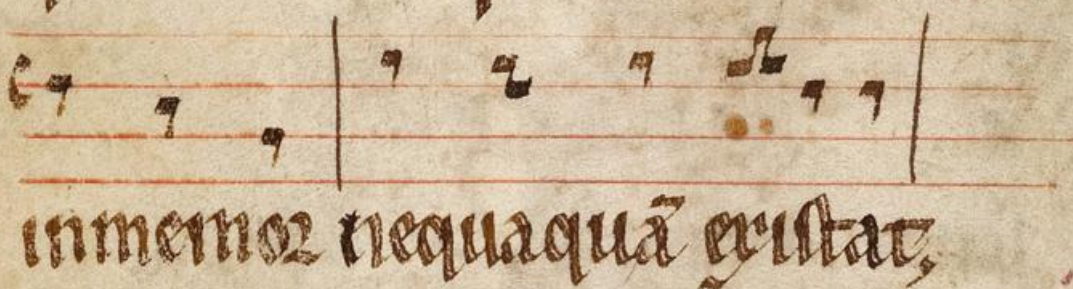 inmemoꝛ nequaquā exiſtat;